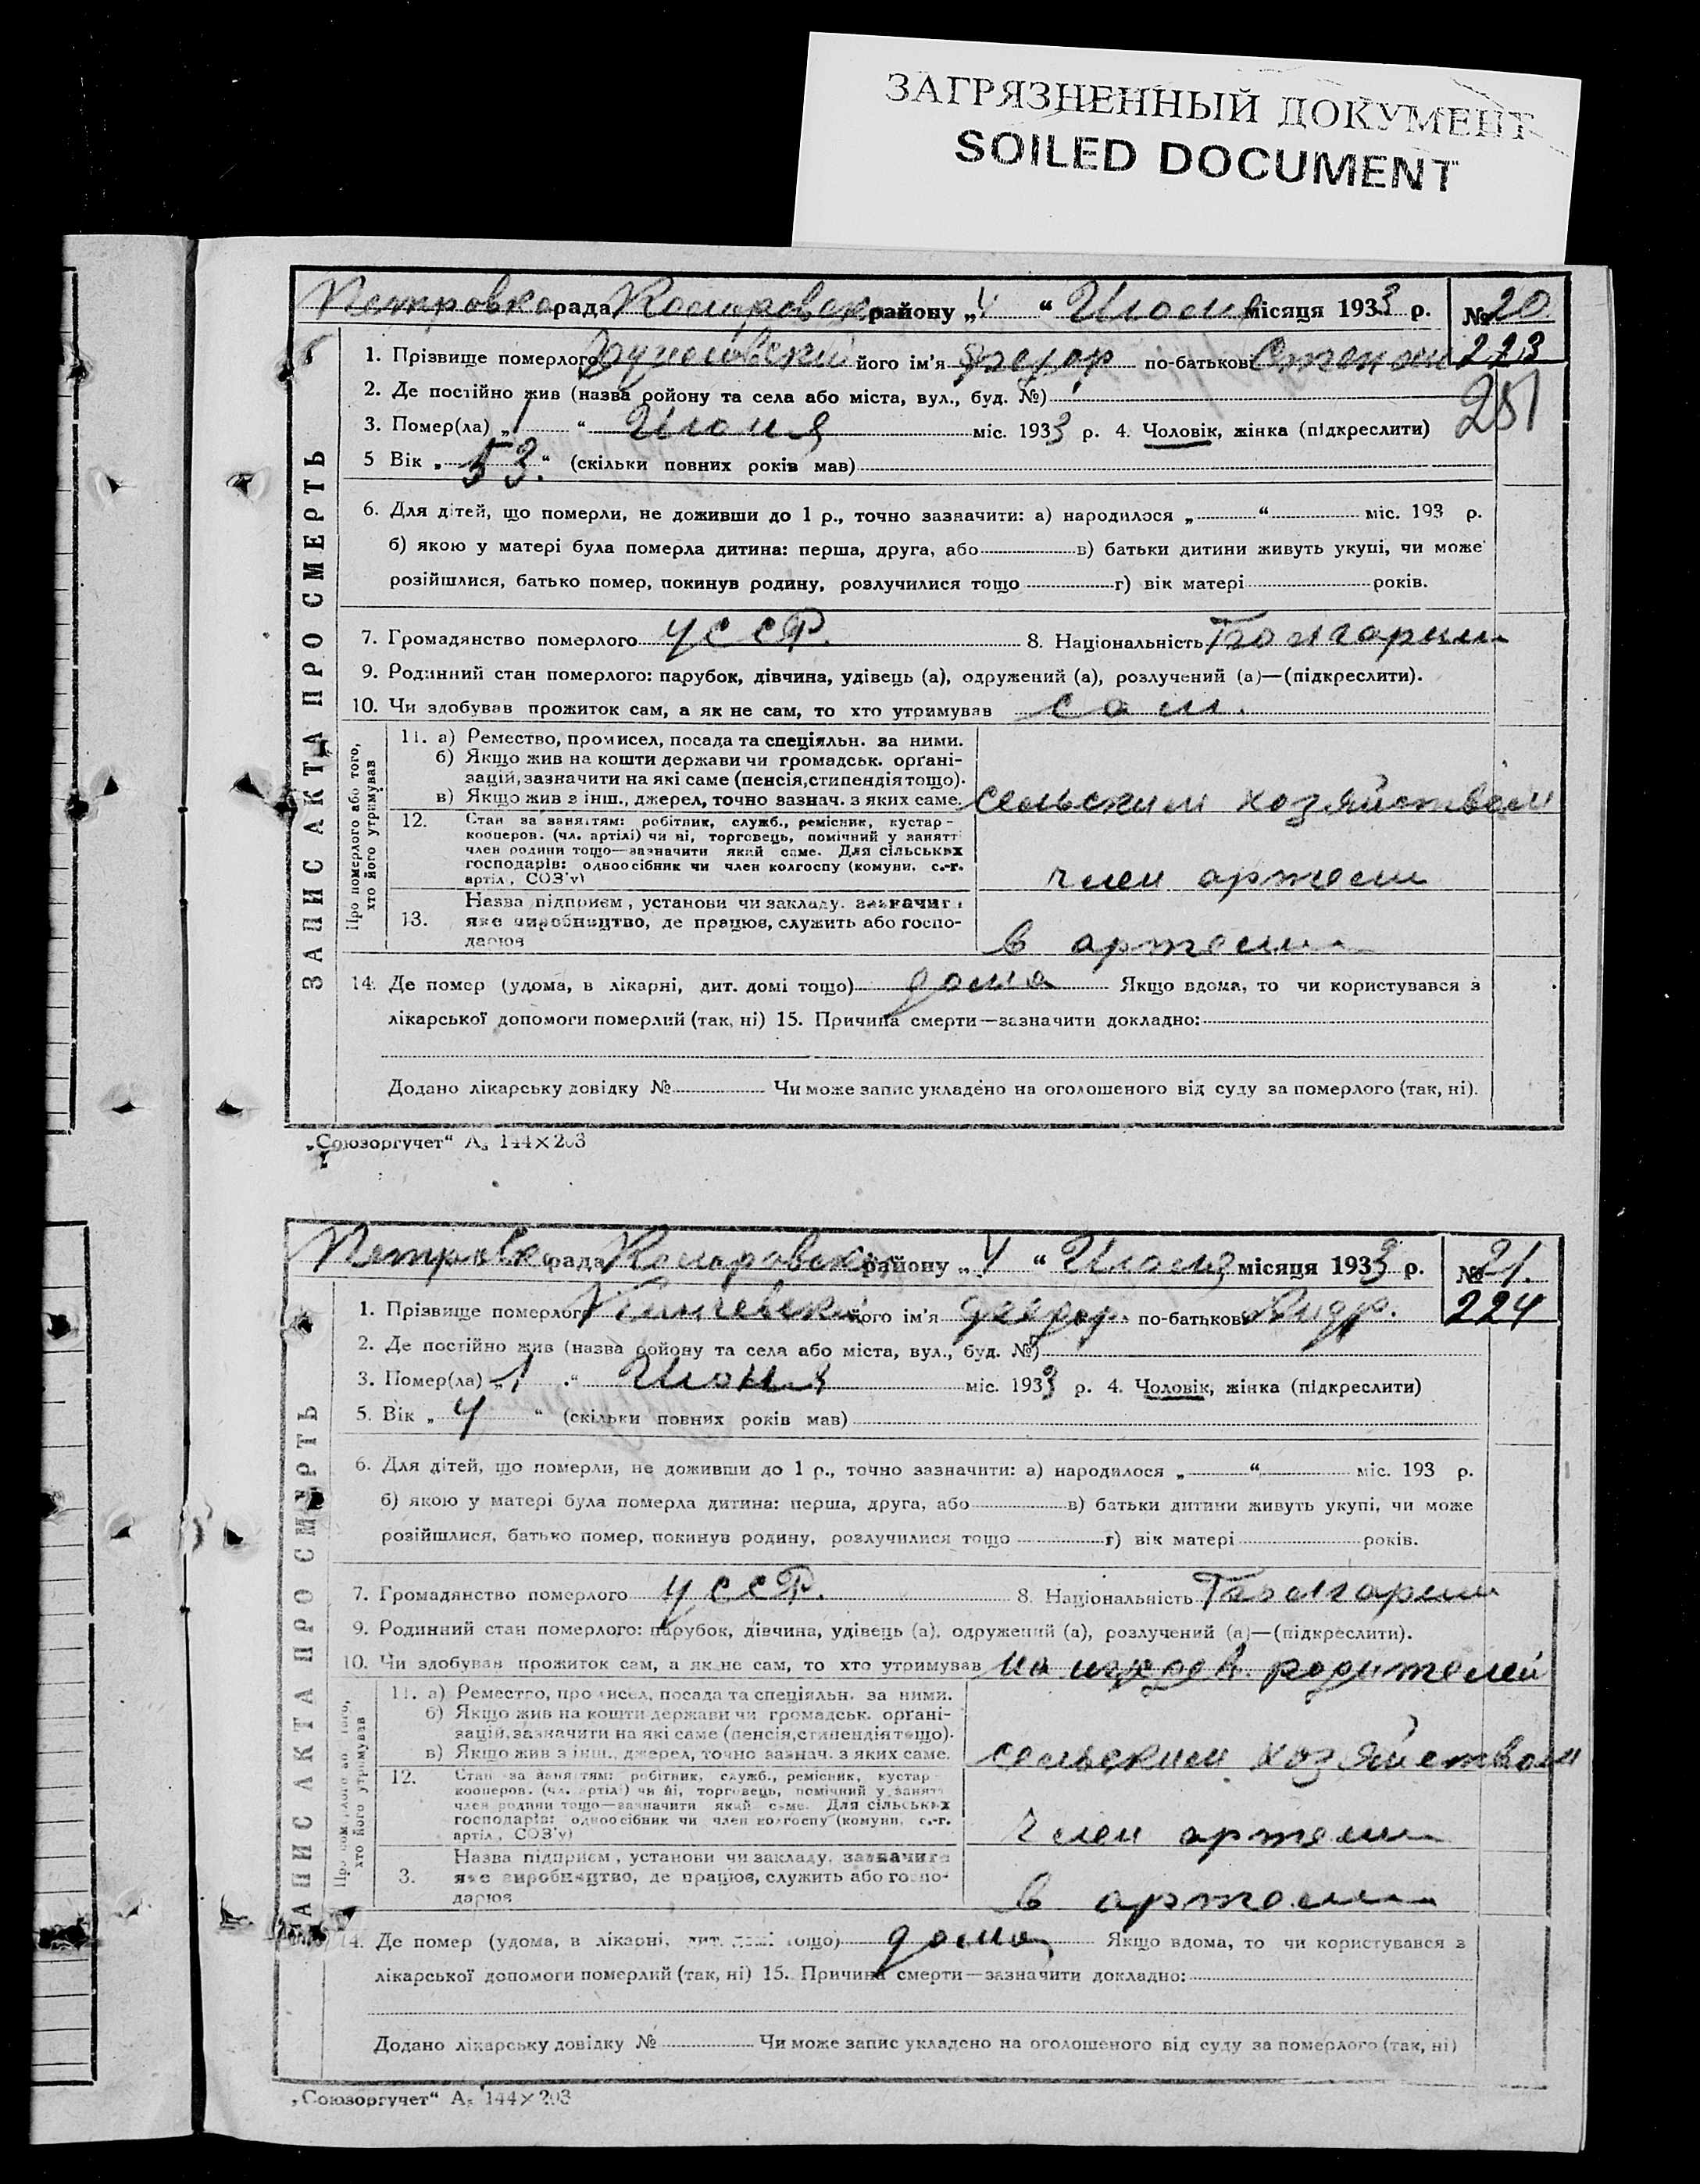 ЗАГРЯЗНЕННЫЙ ДОКУМЕНТ
SOILED DOCUMENT
ЗАПИС АКТА ПРО СМЕРТЬ
Петровка рада району „4 “ месяця 1933 р. № 20
1. Прізвище померлого його ім'я Федор по-батькові 223
2. Де постійно жив (назва району та села або міста, вул., буд. №) 251
3. Помер(ла) „1 “ Июня міс. 1933 р. 4. Чоловік, жінка (підкреслити)
5 Вік „ 53. “ (скільки повних років мав)
6. Для дітей, що померли, не доживши до 1 р., точно зазначити: а) народилося „ “ міс. 193 р.
б) якою у матері була померла дитина: перша, друга, або в) батьки дитини живуть укупі, чи може
розійшлися, батько помер, покинув родину, розлучилися тощо г) вік матері років.
7. Громадянство померлого УССР. 8. Національність Болгарин
9. Родинний стан померлого: парубок, дівчина, удівець (а), одружений (а), розлучений (а)—(підкреслити).
10. Чи здобував прожиток сам, а як не сам, то хто утримував сам.
Про померлого або того, хто його утримував
11. а) Ремество, промисел, посада та спеціяльн. за ними.
б) Якщо жив на кошти держави чи громадськ. органі-
зацій, зазначити на які саме (пенсія, стипендія тощо).
в) Якщо жив з інш., джерел, точно зазнач. з яких саме. сельским хозяйством
12. Стан за заняттям: робітник, служб., ремісник, кустар-
кооперов. (чл. артілі) чи ні, торговець, помічний у занятті
член родини тощо—зазначити який саме. Для сільських
господарів: одноосібник чи член колгоспу (комуни, с.-г.
артіл., СОЗ'у) член артели
Назва підприєм., установи чи закладу, зазначити
13. яке виробництво, де працює, служить або госпо-
дарює в артели
14. Де помер (удома, в лікарні, дит. домі тощо) дома Якщо вдома, то чи користувався з
лікарської допомоги померлий (так, ні) 15. Причина смерти—зазначити докладно:
Додано лікарську довідку № Чи може запис укладено на оголошеного від суду за померлого (так, ні).
„Союзоргучет“ А₅ 144×203
ЗАПИС АКТА ПРО СМЕРТЬ
Петровка рада району „4 “ місяця 1933 р. № 21.
1. Прізвище померлого його ім'я Федор по-батькові Андр. 224
2. Де постійно жив (назва району та села або міста, вул., буд. №)
3. Помер(ла) „1 “ Июня міс. 1933 р. 4. Чоловік, жінка (підкреслити)
5. Вік „ 4 “ (скільки повних років мав)
6. Для дітей, що померли, не доживши до 1 р., точно зазначити: а) народилося „ “ міс. 193 р.
б) якою у матері була померла дитина: перша, друга, або в) батьки дитини живуть укупі, чи може
розійшлися, батько помер, покинув родину, розлучилися тощо г) вік матері років.
7. Громадянство померлого УССР. 8. Національність Болгарин
9. Родинний стан померлого: парубок, дівчина, удівець (а), одружений (а), розлучений (а)—(підкреслити).
10. Чи здобував прожиток сам, а як не сам, то хто утримував на иждев. родителей
Про померлого або того, хто його утримував
11. а) Ремество, промисел, посада та спеціяльн. за ними.
б) Якщо жив на кошти держави чи громадськ. органі-
зацій, зазначити на які саме (пенсія, стипендія тощо).
в) Якщо жив з інш., джерел, точно зазнач. з яких саме. сельским хозяйством
12. Стан за заняттям: робітник, служб., ремісник, кустар-
кооперов. (чл. артілі) чи ні, торговець, помічний у занятті
член родини тощо—зазначити який саме. Для сільських
господарів: одноосібник чи член колгоспу (комуни, с.-г.
артіл., СОЗ'у) член артели
Назва підприєм., установи чи закладу, зазначити
3. яке виробництво, де працює, служить або госпо-
дарює в артели
14. Де помер (удома, в лікарні, дит. домі тощо) дома Якщо вдома, то чи користувався з
лікарської допомоги померлий (так, ні) 15. Причина смерти—зазначити докладно:
Додано лікарську довідку № Чи може запис укладено на оголошеного від суду за померлого (так, ні)
„Союзоргучет“ А₅ 144×203